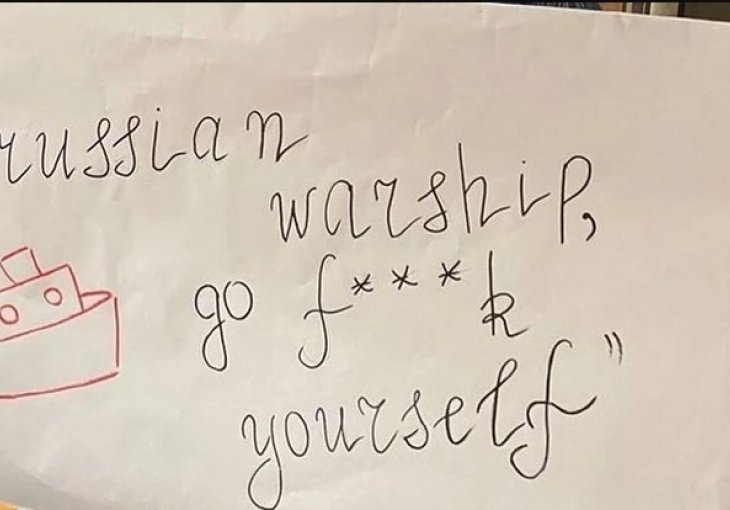 russian
warship,
go f***k
yourself"